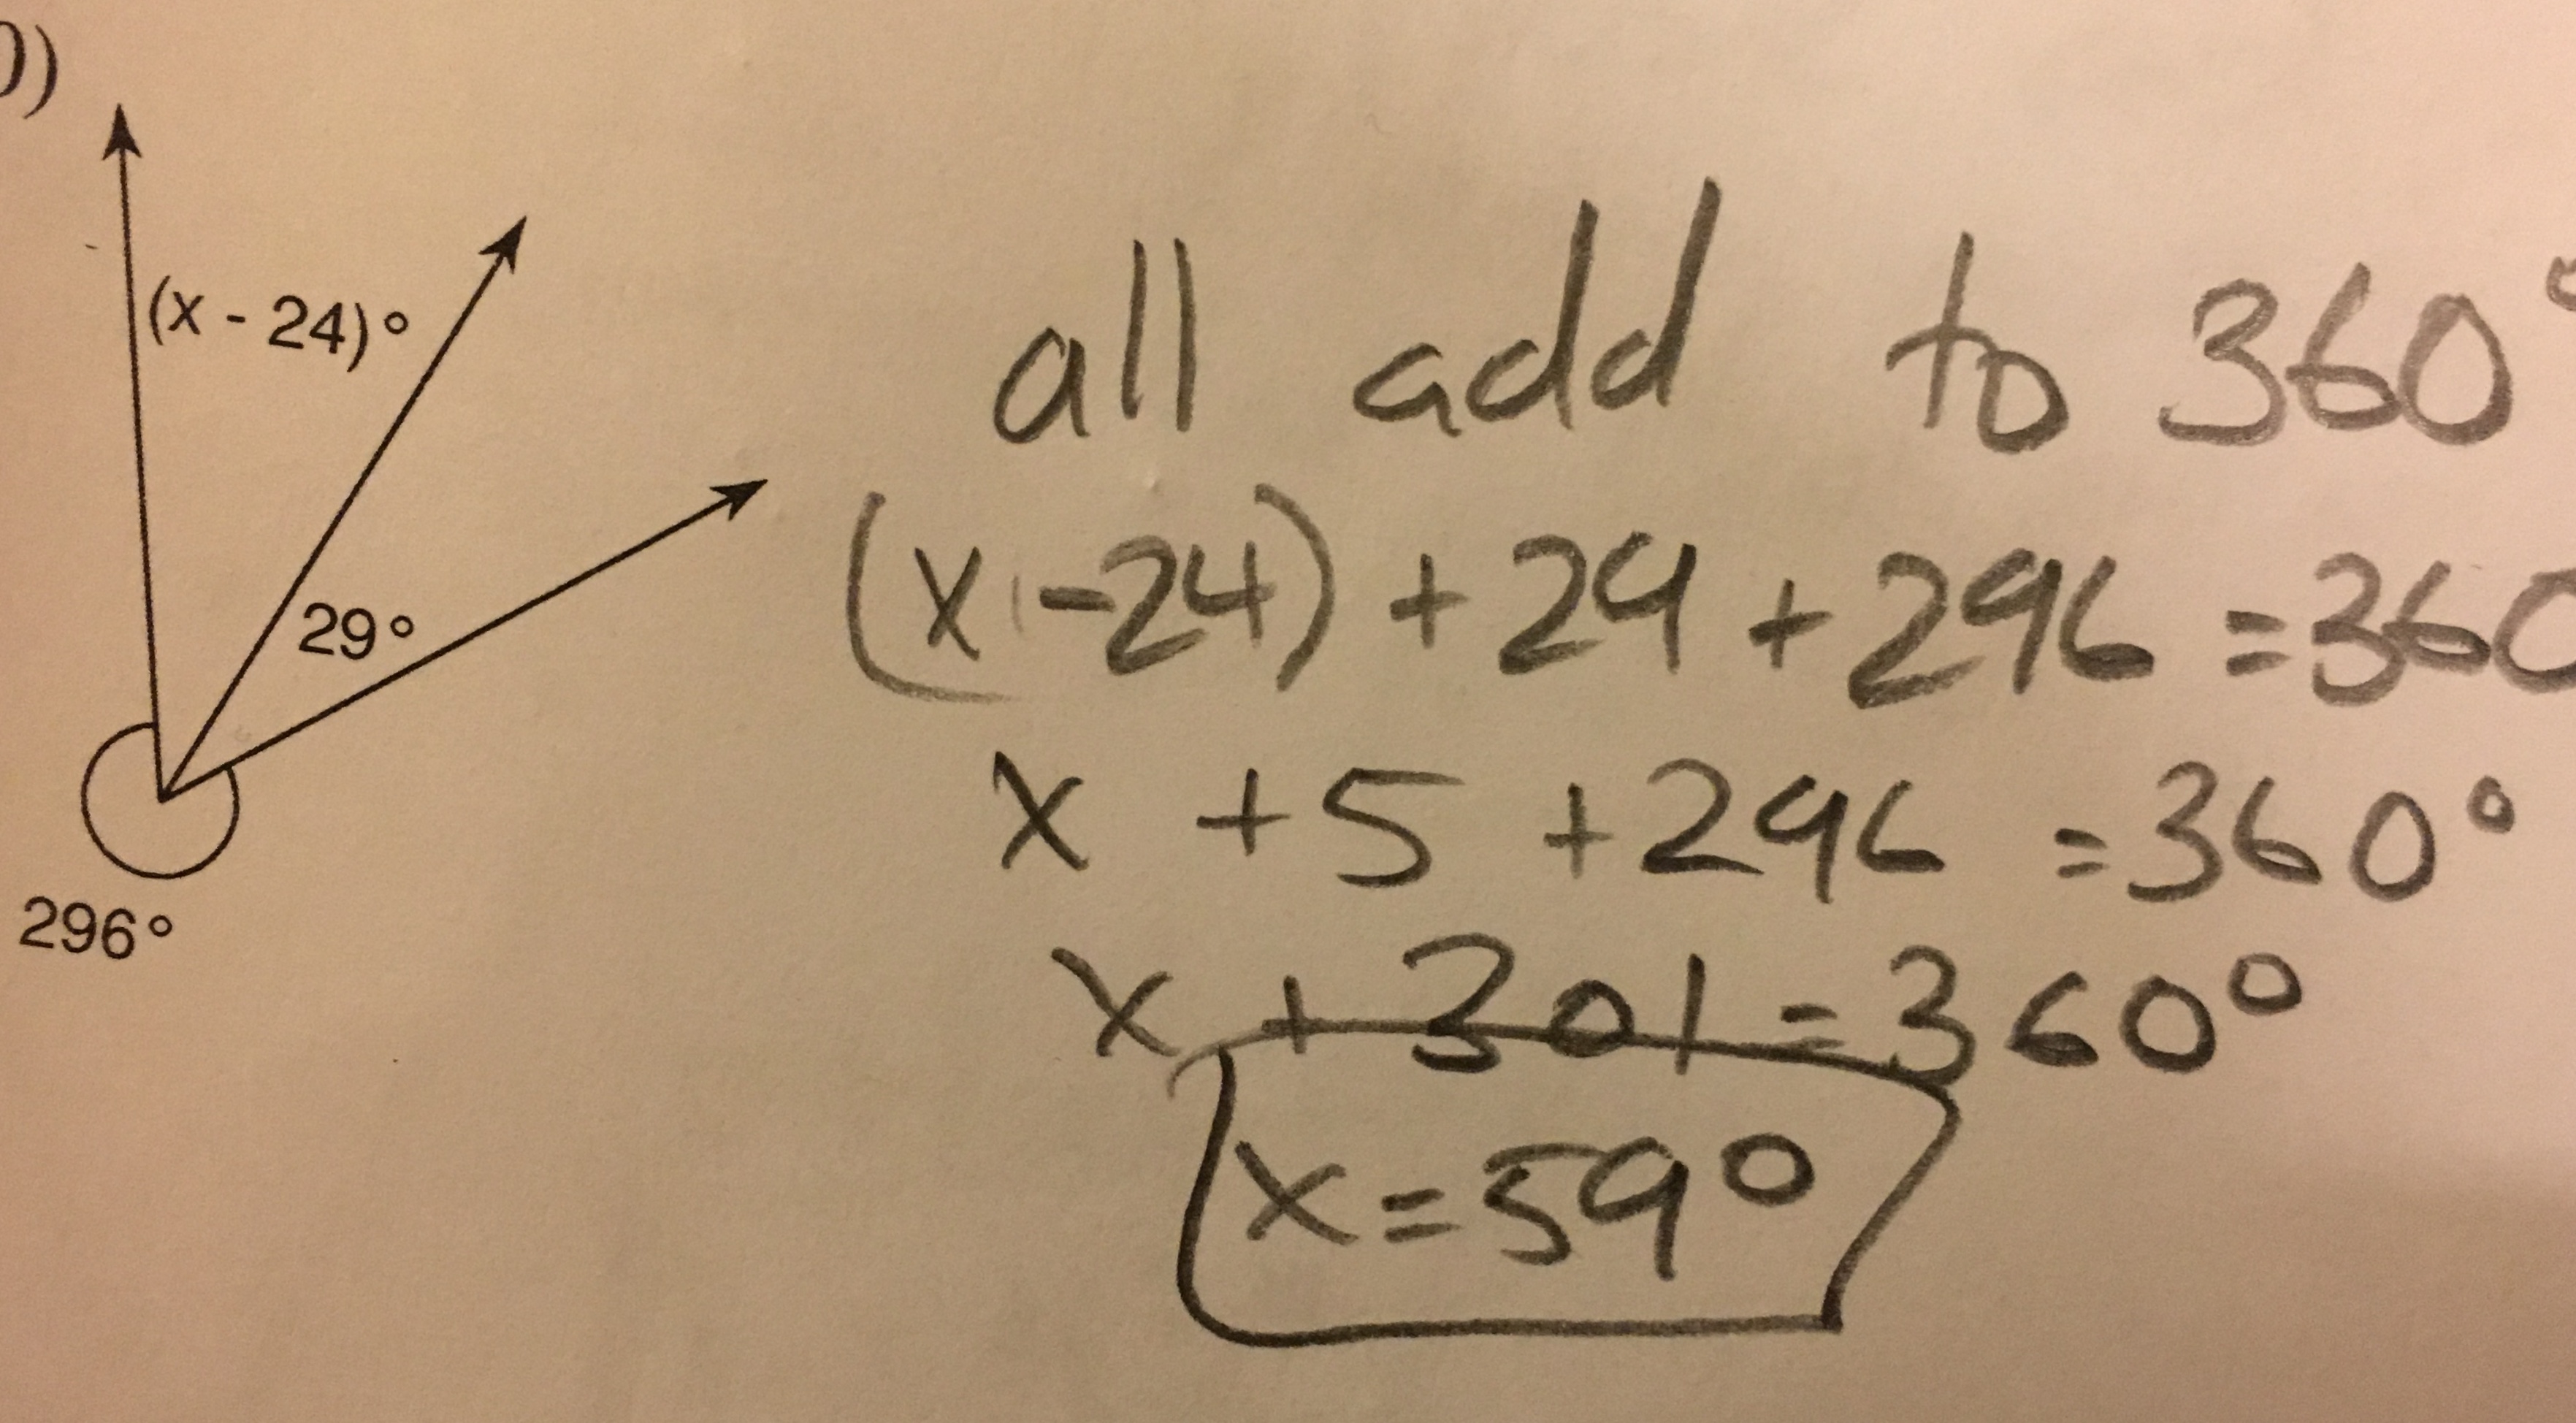 )
(x - 24)°
29°
296°
all add to 360°
(x - 24) + 29 + 296 = 360
x + 5 + 296 = 360°
x + 301 = 360°
x = 59°